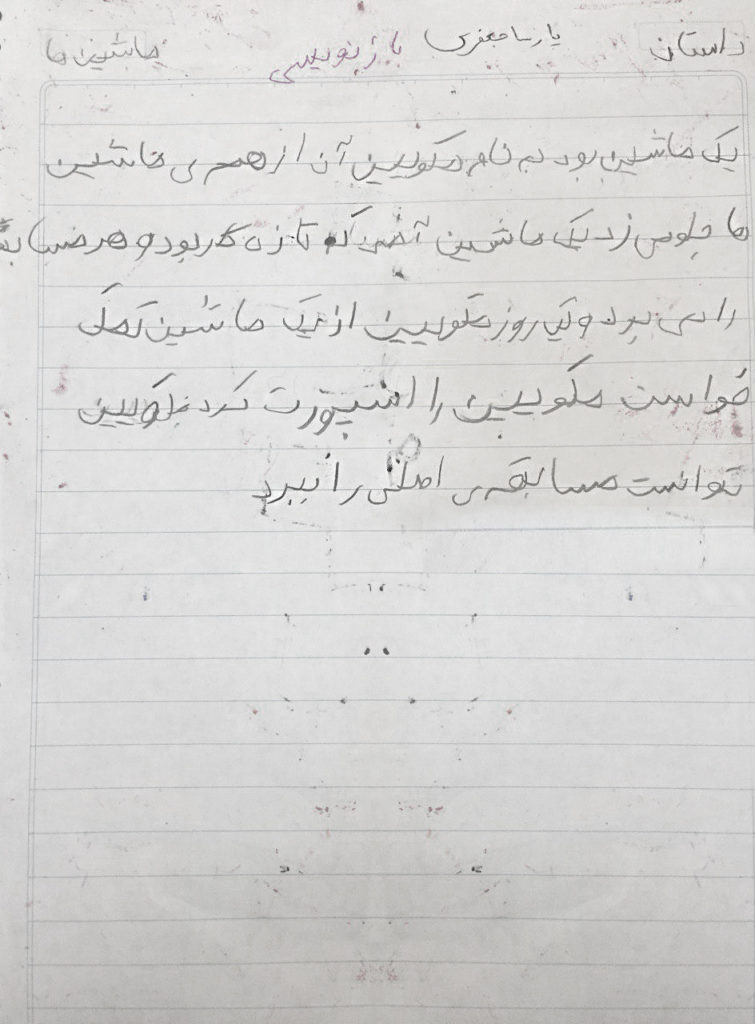 داستان پارسا جعفری بازنویسی ماشین ها
یک ماشین بود به نام مکویین آن از همه ی ماشین
ها جلو می زد یک ماشین که تازه کار بود و هر مسابقه
را می برد و یک روز مکویین از یک ماشین کمک
خواست مکویین را کرد مکویین
توانست مسابقه ی اصلی را ببرد